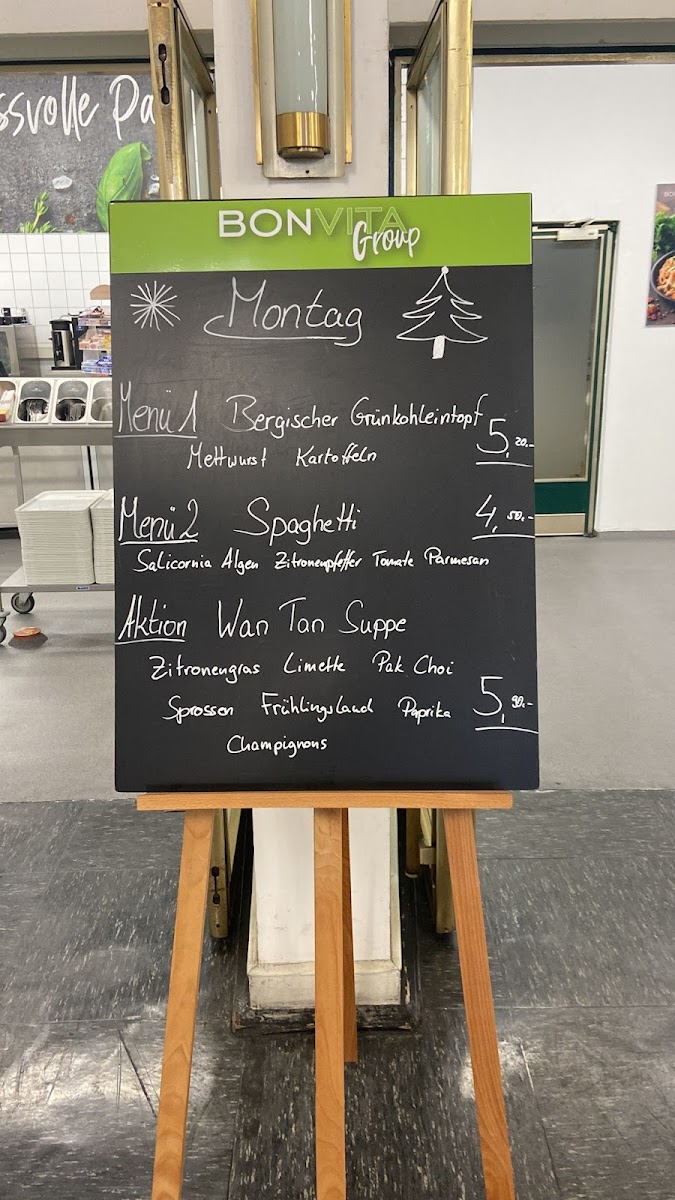 ssvolle Pa
BONVITA
Group
Montag
Menü 1 Bergischer Grünkohleintopf 5,20.-
Mettwurst Kartoffeln
Menü 2 Spaghetti 4,50.-
Salicornia Algen Zitronenpfeffer Tomate Parmesan
Aktion Wan Tan Suppe
Zitronengras Limette Pak Choi
Sprossen Frühlingslauch Paprika 5,90.-
Champignons